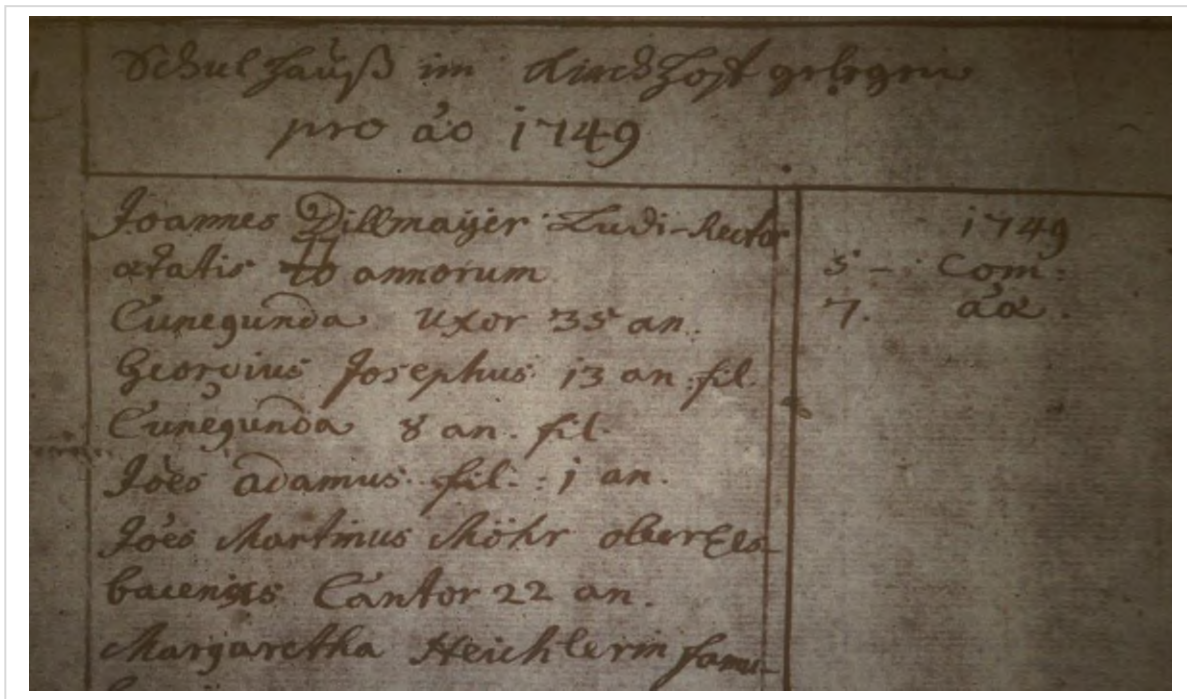 Schulhauß im Kirchhoff gelegen
pro ao 1749
Joannes Dillmaÿer Ludi-Rector
ætatis annorum
Cunegunda Uxor 35 an.
Georgius Josephus 13 an: fil.
Cunegunda 8 an. fil.
Jões adamus fil. 1 an.
Jões Martinus Möhr oberEls-
bacensis Cantor 22 an.
Margaretha Heichlerin famu-
1749
5 - Com:
7. aa.